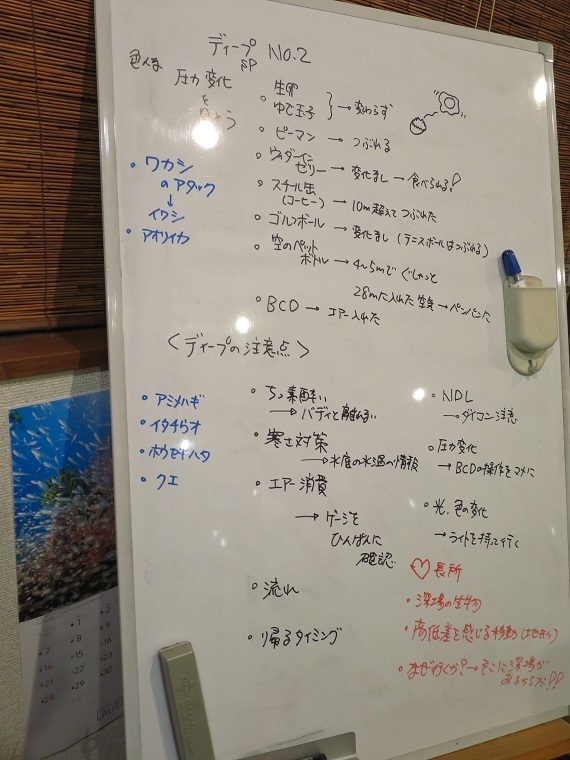 ディープ No.2
SP
圧力変化
を
・生卵
ゆで玉子 → 変わらず
・ピーマン → つぶれる
・ウィダーイン
ゼリー → 変化なし → 食べられる!
・スチール缶
(コーヒー) → 10m超えてつぶれた
・ゴルフボール
→ 変化なし (テニスボールはつぶれる)
・空のペット
ボトル → 4〜5mでぐしゃっと
28mに入れた空気 → パンパンに
・BCD → エアー入れた
・ワカシ
のアタック
↓
イワシ
・アオリイカ
<ディープの注意点>
・アミメハギ
・イタチウオ
・ホウセキハタ
・クエ
・ちっ素酔い
→ バディと離れない
・寒さ対策
→ 水底の水温の情報
・エアー消費
→ ゲージを
ひんぱんに
確認
・流れ
・帰るタイミング
・NDL
→ ダイコン注意
・圧力変化
→ BCDの操作をマメに
・光、色の変化
→ ライトを持って行く
♡長所
・深場の生物
・高低差を感じる移動(地形)
・なぜ行くか?→そこに深場が
あるからだ!!